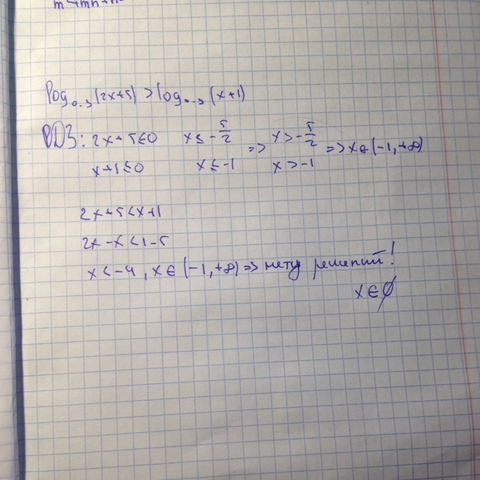 log₀.₃(2x+5) > log₀.₃(x+1)
OD3: 2x+5≤0 x≤-5/2 => x>-5/2 => x∈(-1,+∞)
x+1≤0 x≤-1 x>-1
2x+5<x+1
2x-x<1-5
x<-4, x∈(-1,+∞) => нету решений!
x∈∅